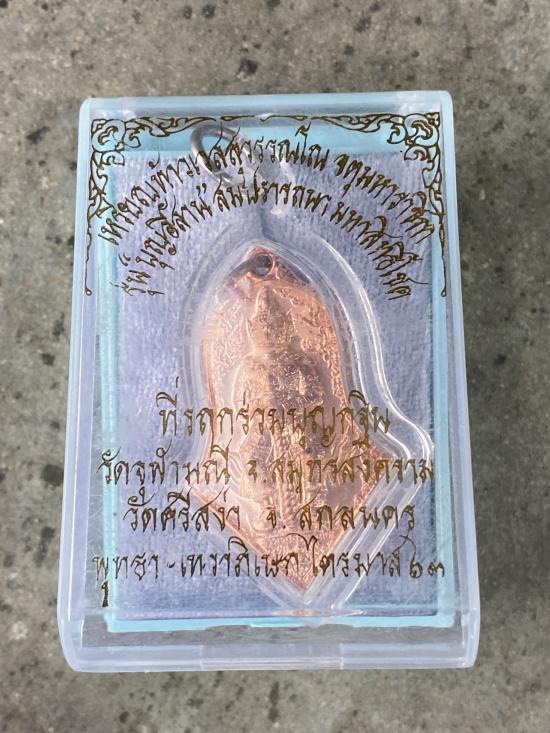 เหรียญท้าวเวสสุวรรณโณ จตุมหาราชิกา
รุ่น "บุญอีสาน" สมปรารถนา มหาสิทธิโชค
ที่ระลึกร่วมบุญกฐิน
วัดจุฬามณี จ.สมุทรสงคราม
วัดศรีสง่า จ. สกลนคร
พุทธา - เทวาภิเษก ไตรมาส ๖๓